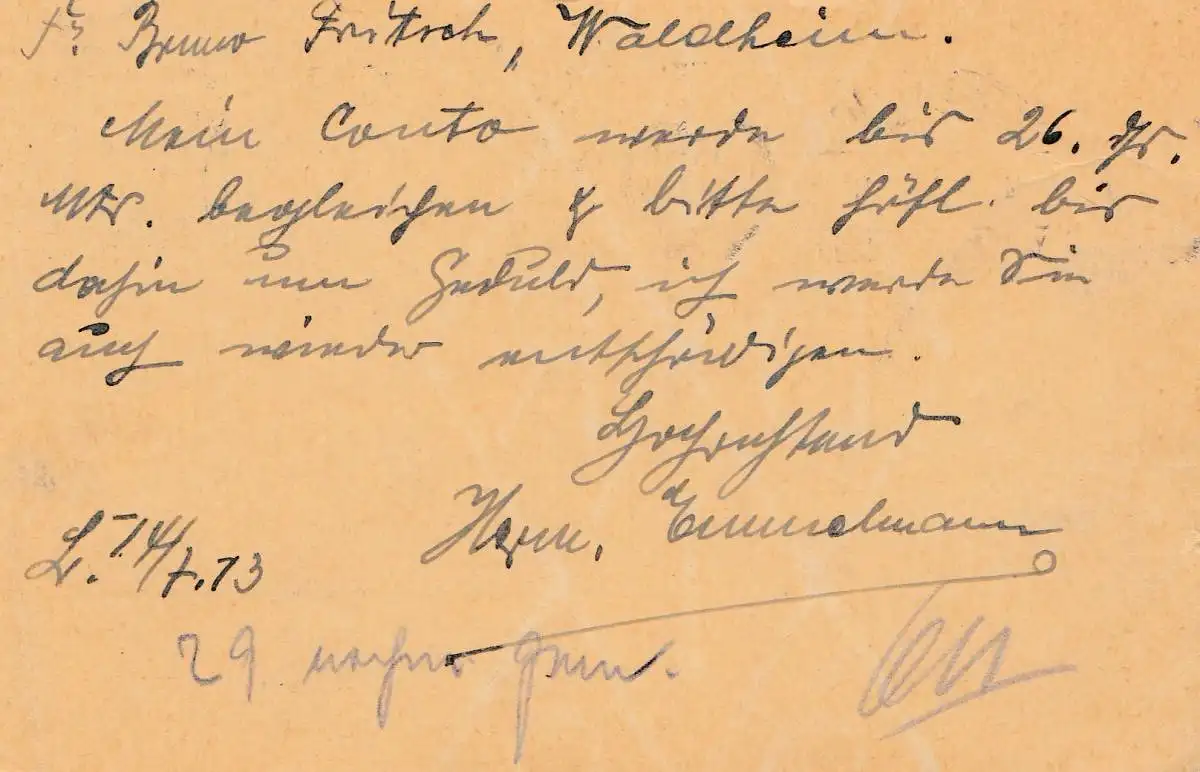 Fa. Bruno Fritsch, Waldheim.
Mein Conto werde bis 26. ds.
Mts. begleichen & bitte höfl. bis
dahin um Geduld, ich werde Sie
auch wieder entschädigen.
Hochachtend
Herm. Emmelmann
L. 14/7.13
29